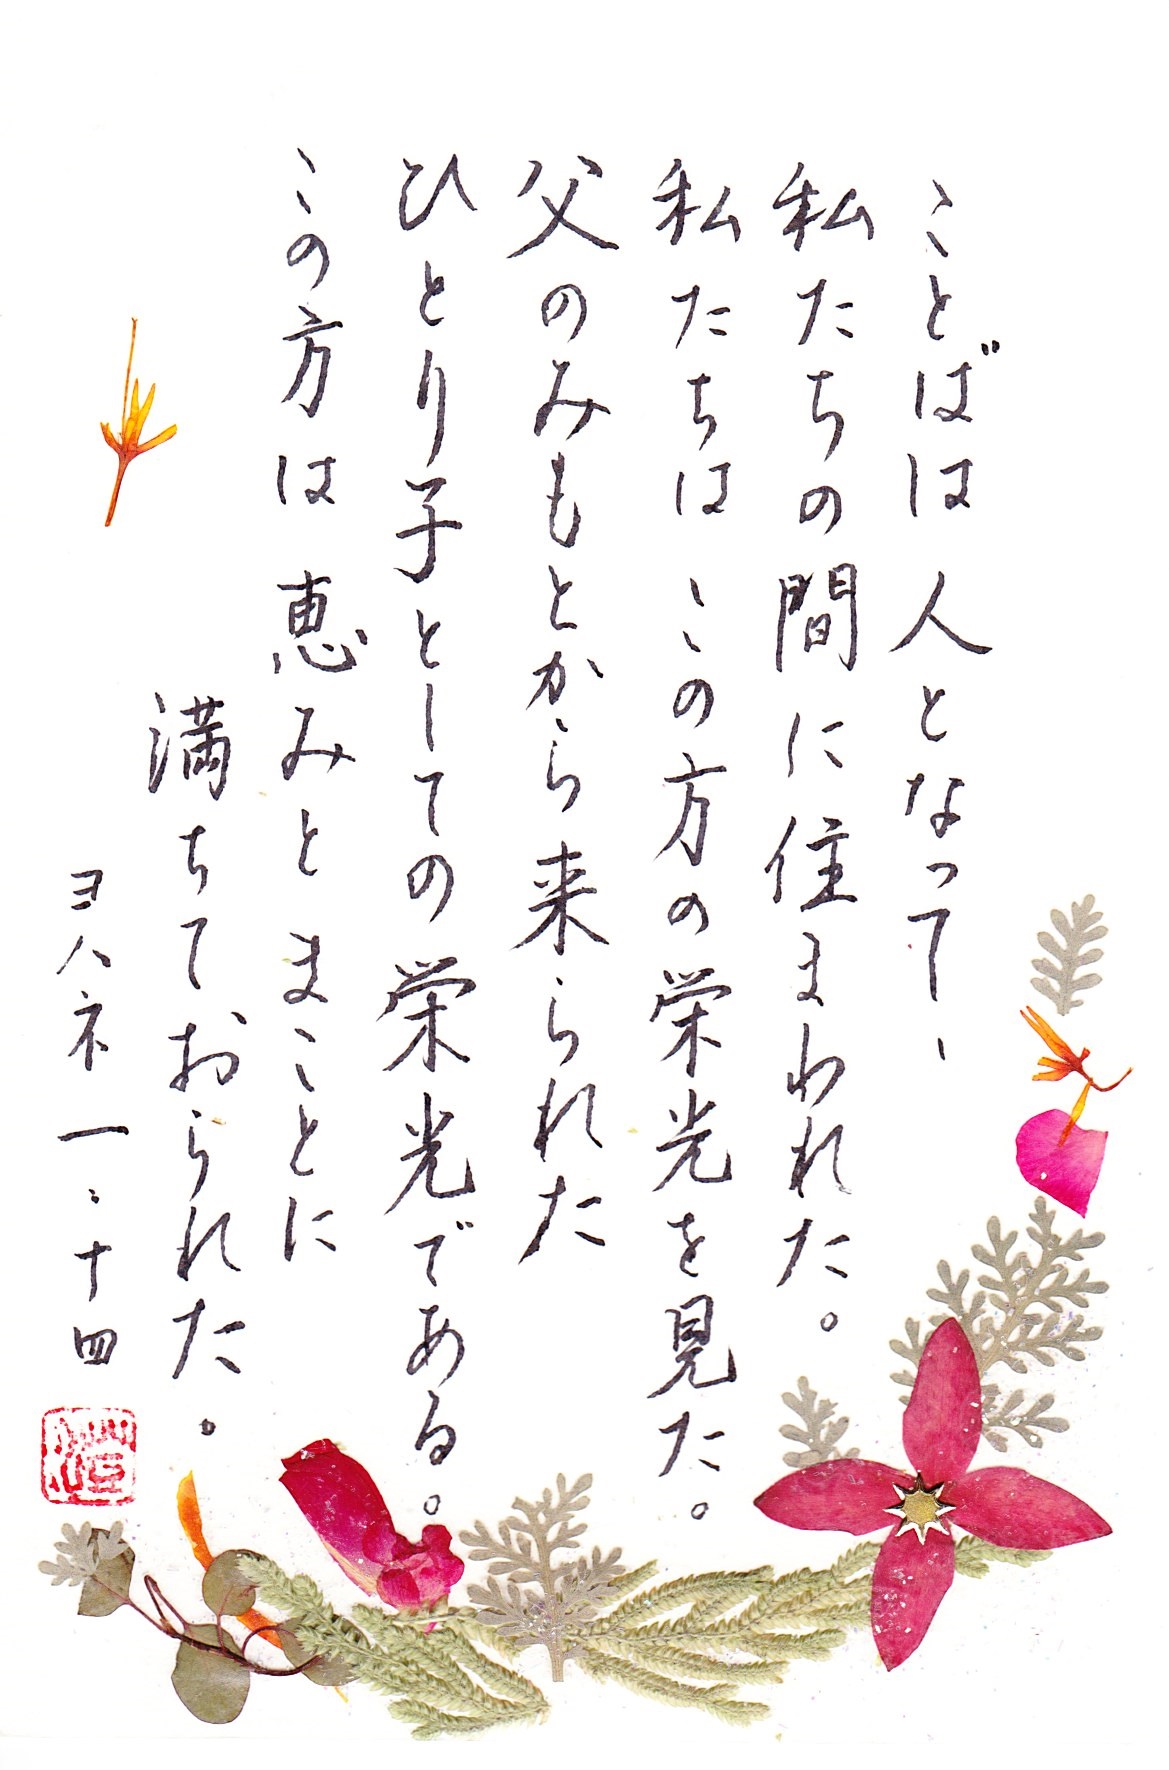 ことばは 人となって、
私たちの間に住まわれた。
私たちは この方の栄光を見た。
父のみもとから来られた
ひとり子としての栄光である。
この方は 恵みとまことに
満ちておられた。
ヨハネ 一:十四